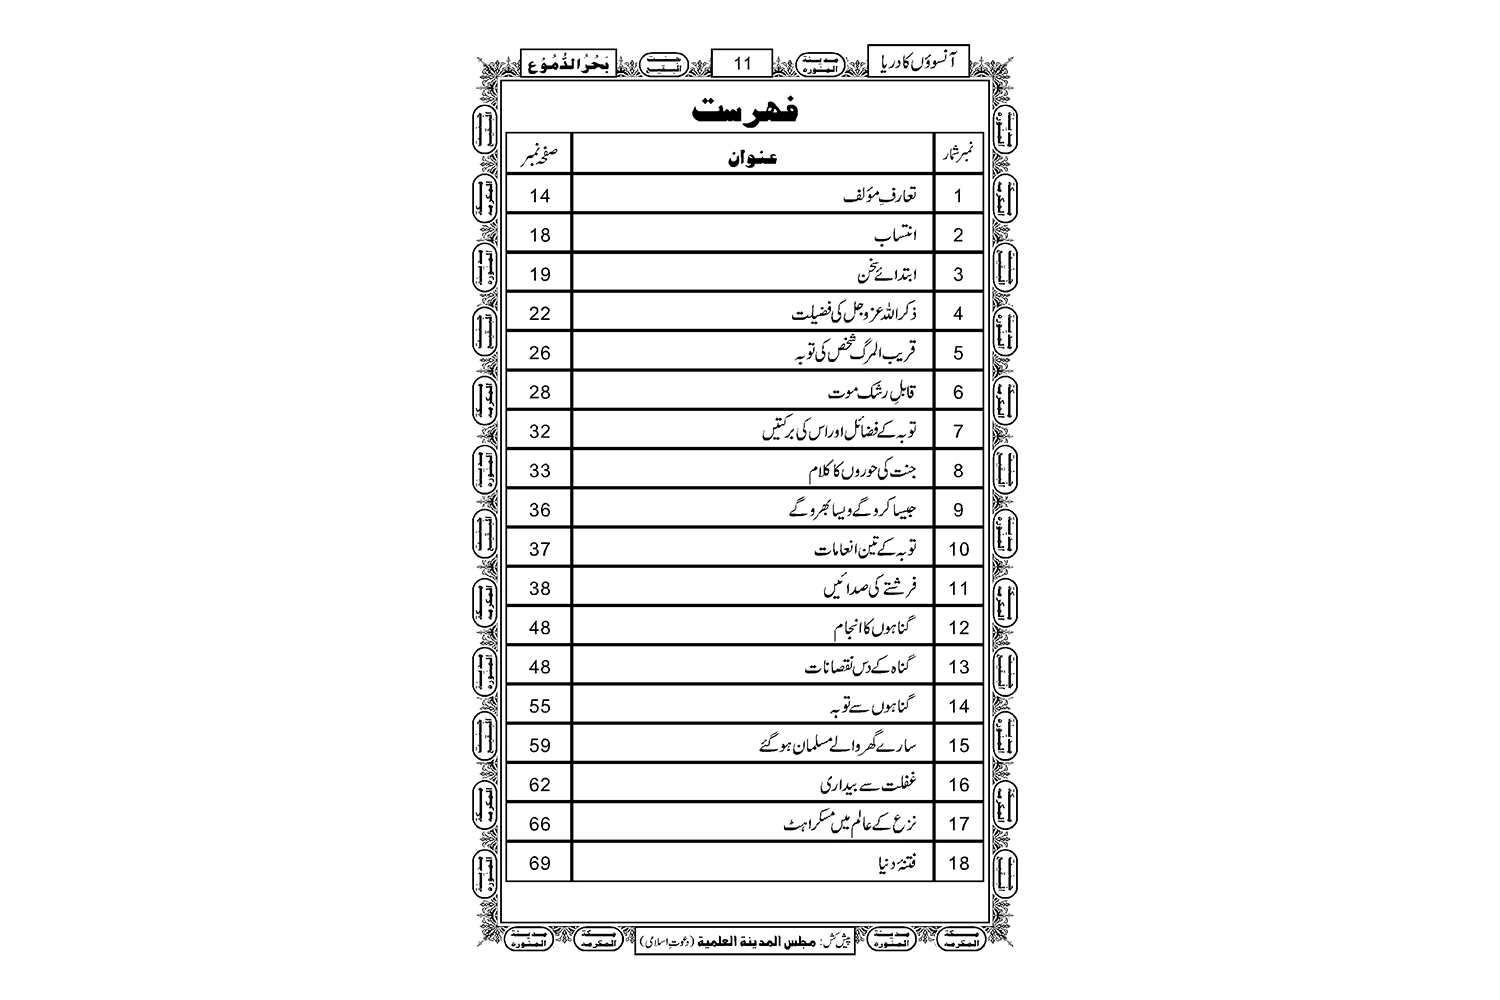 آنسوؤں کا دریا
مدينة المنوره
11
جنت البقيع
بَحْرُ الدُّمُوْع
فهرست
نمبر شمار عنوان صفحہ نمبر
1 تعارفِ مؤلف 14
2 انتساب 18
3 ابتدائے سخن 19
4 ذکر اللہ عزوجل کی فضیلت 22
5 قریب المرگ شخص کی توبہ 26
6 قابلِ رشک موت 28
7 توبہ کے فضائل اور اس کی برکتیں 32
8 جنت کی حوروں کا کلام 33
9 جیسا کرو گے ویسا بھرو گے 36
10 توبہ کے تین انعامات 37
11 فرشتے کی صدائیں 38
12 گناہوں کا انجام 48
13 گناہ کے دس نقصانات 48
14 گناہوں سے توبہ 55
15 سارے گھر والے مسلمان ہو گئے 59
16 غفلت سے بیداری 62
17 نزع کے عالم میں مسکراہٹ 66
18 فتنۂ دنیا 69
مكة المكرمه
مدينة المنوره
پیش کش: مجلس المدينة العلمية (دعوتِ اسلامی)
مكة المكرمه
مدينة المنوره